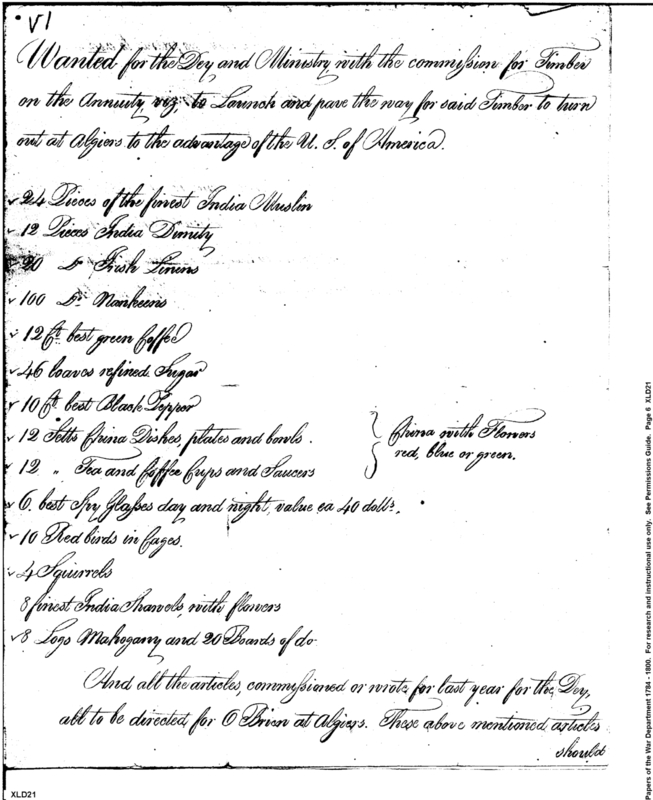 VI
Wanted for the Dey and Ministry with the commission for Timber
on the Annuity viz, to Launch and pave the way for said Timber to turn
out at Algiers to the advantage of the U. S. of America.
24 Pieces of the finest India Muslin
12 Pieces India Dimity
20 Do Irish Linens
100 Do Nankeens
12 Ct. best green Coffee
46 loaves refined Sugar
10 Ct. best Black Pepper
12 Setts China Dishes, plates and bowls.
12 " Tea and Coffee Cups and Saucers
China with Flowers
red, blue or green.
6. best Spy Glasses day and night, value ea 40 dolls.
10 Red birds in Cages.
4 Squirrels
8 finest India Shawels, with flowers
8 Logs Mahogany and 20 Boards of do
And all the articles, commissioned or wrote for last year for the Dey,
all to be directed for O Brien at Algiers. These above mentioned articles
should
XLD21
Papers of the War Department 1784 - 1800. For research and instructional use only. See Permissions Guide. Page 6 XLD21